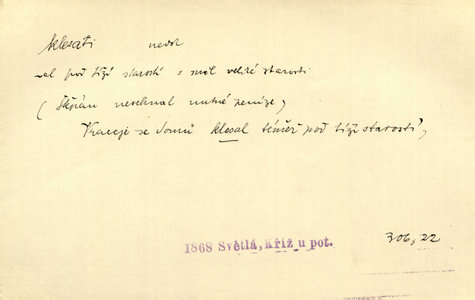 klesati nedok
-al pod tíží starostí = měl veliké starosti
(Štěpán nesehnal nutné peníze)
Vraceje se domů klesal téměř pod tíží starostí,
306, 22
1868 Světlá, Kříž u pot.